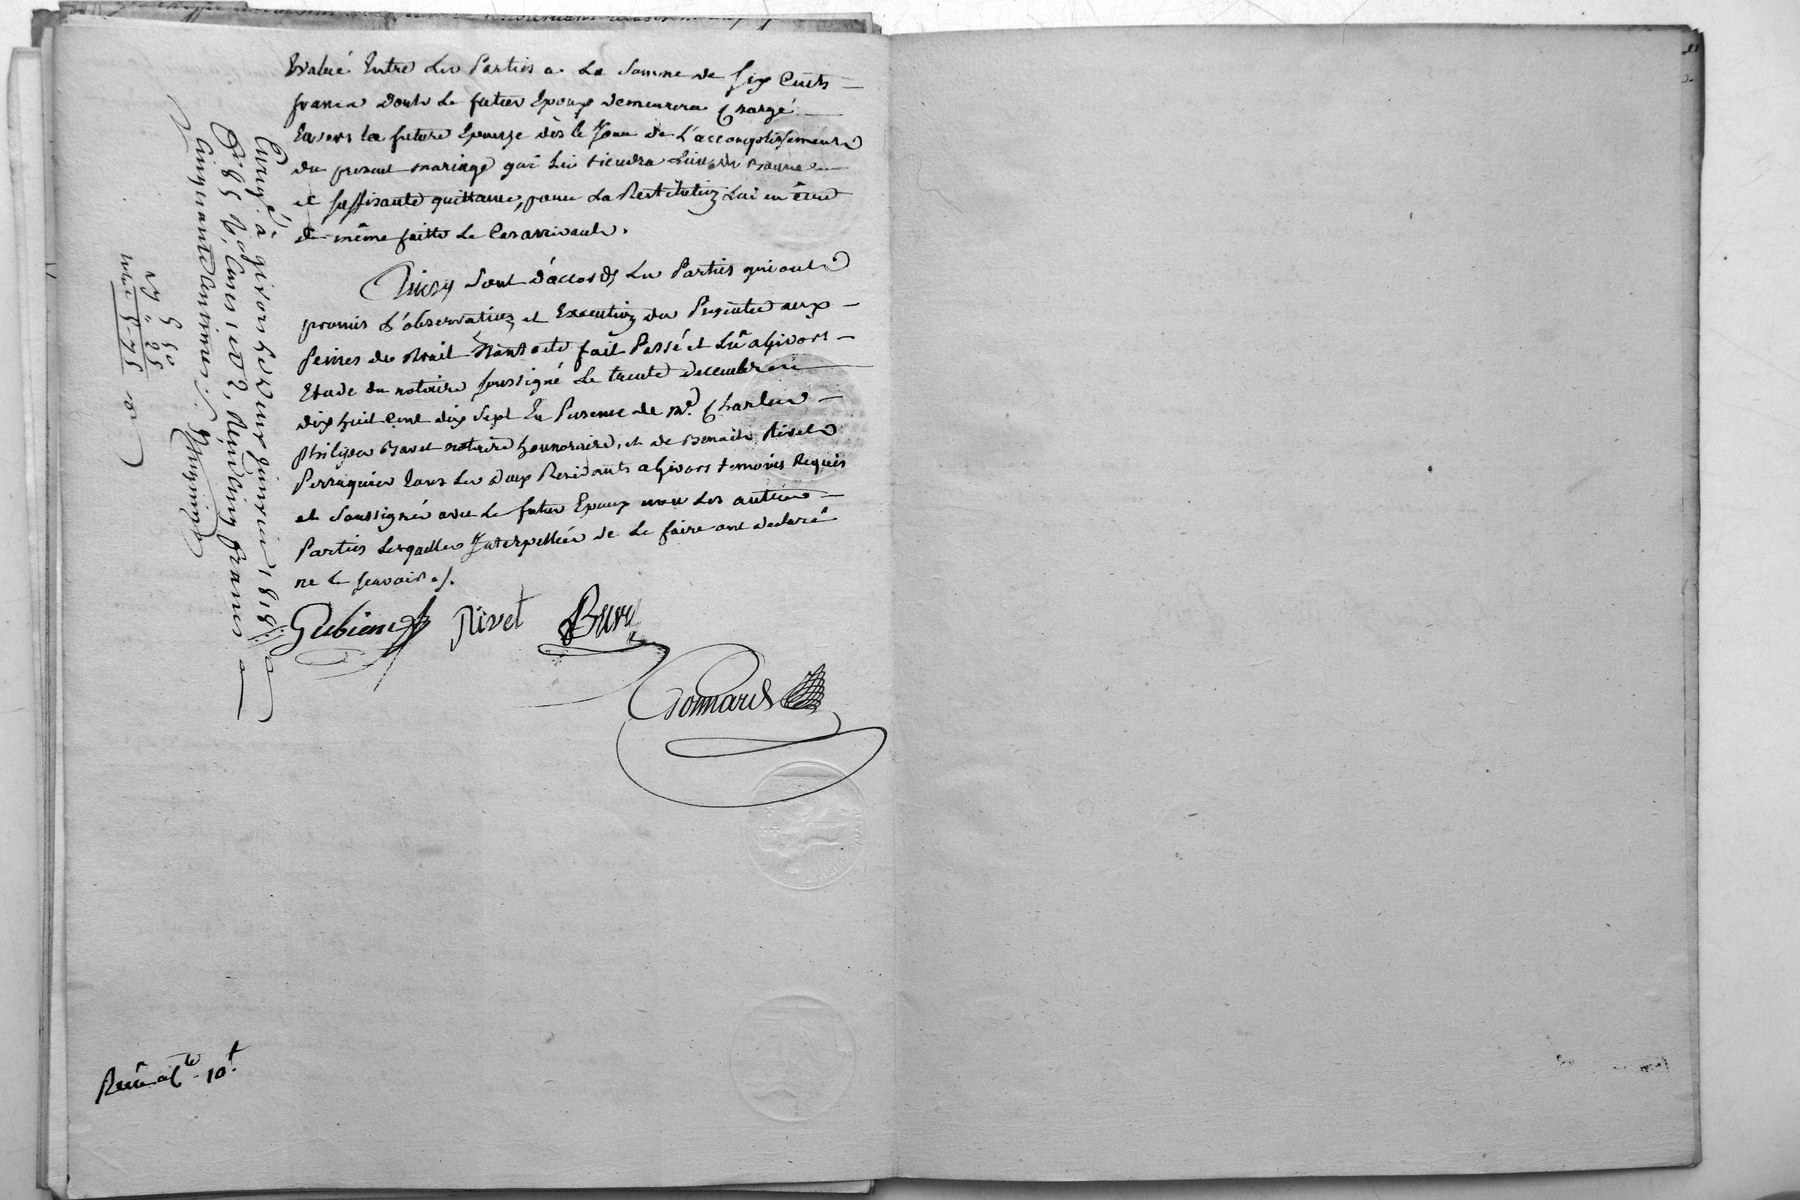 Evalué Entre Les Parties a La Somme de Six Cents
francs dont Le futur Epoux demeurera Chargé
Envers la future Epouse dès le Jour de L'accomplissement
du present mariage qui lui tiendra Lieu de Bonne
et suffisante quittance, pour La Restitution Lui en être
de même faitte Le Cas arrivant.
Ainsy Sont d'accord Les Parties qui ont
promis L'observation et Execution des Presentes aux
Peines de droit Dont acte fait Passé et Lû a Givors
Etude du notaire soussigné Le trente decembre
dix huit Cent dix Sept En Presence de Me. Charles
Philipe Bavet notaire honnoraire, et de Benoit Rivet
Perruquier tous Les deux Residants a Givors temoins Requis
et Soussignés avec Le futur Epoux non Les autres
Parties Lesquelles Interpellées de Le faire ont declaré
ne Le sçavoir ./.
Rivet
Gonnard
Enregé. à givors le deux janvier 1818
fo. 85 Vo. Cases 1 et 2, Reçu Cinq francs
Cinquante Centimes.
5 50
55